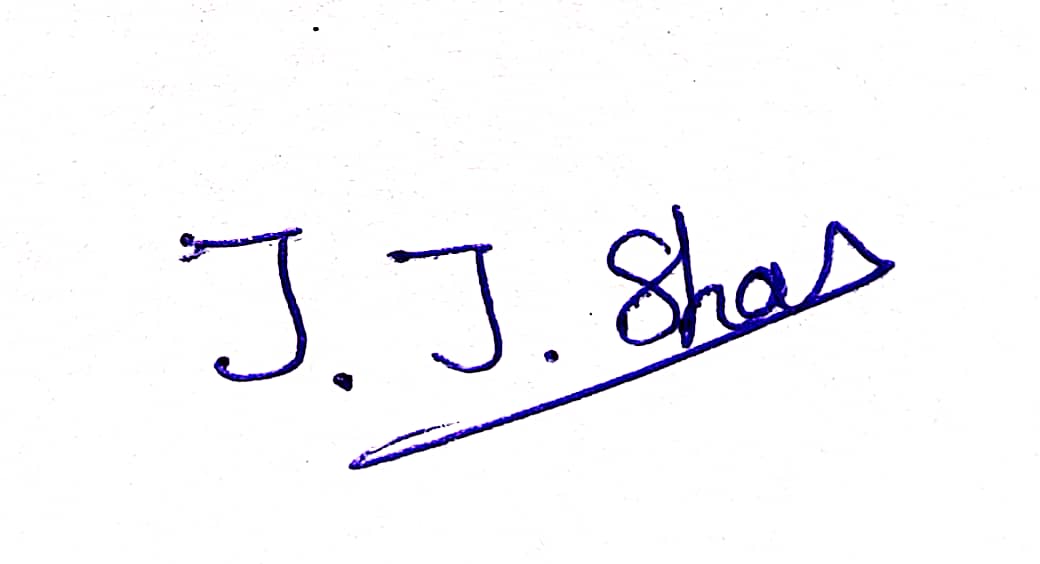 J. J. Shah